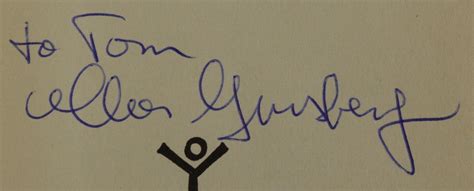 to Tom
Allen Ginsberg